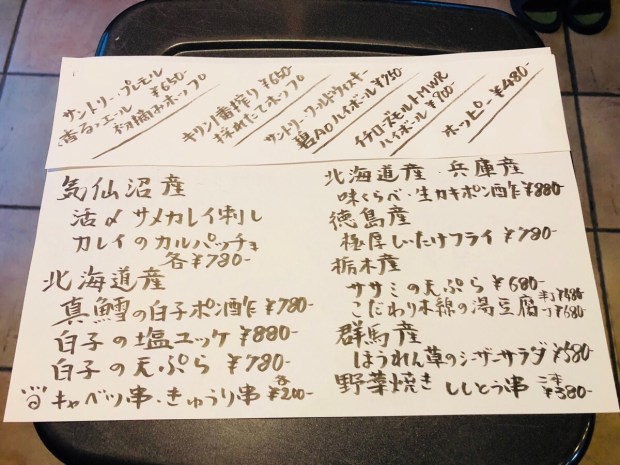 サントリープレモル
香るエール ¥650
初摘みホップ
キリン一番搾り ¥650
採れたてホップ
サントリーワールドウイスキー
碧Aoハイボール ¥750
イチローズモルトMWR
ハイボール ¥900
ホッピー ¥480-
気仙沼産
活〆サメカレイ刺し
カレイのカルパッチョ
各¥780-
北海道産
真鱈の白子ポン酢 ¥780-
白子の塩ユッケ ¥880-
白子の天ぷら ¥780-
キャベツ串・きゅうり串 各¥200-
北海道産・兵庫産
味くらべ・生カキポン酢 ¥880-
徳島産
極厚しいたけフライ ¥780-
栃木産
ササミの天ぷら ¥680-
こだわり木綿の湯豆腐 半丁¥480- 一丁¥680-
群馬産
ほうれん草のシーザーサラダ ¥580-
野菜焼き ししとう串 二本¥380-